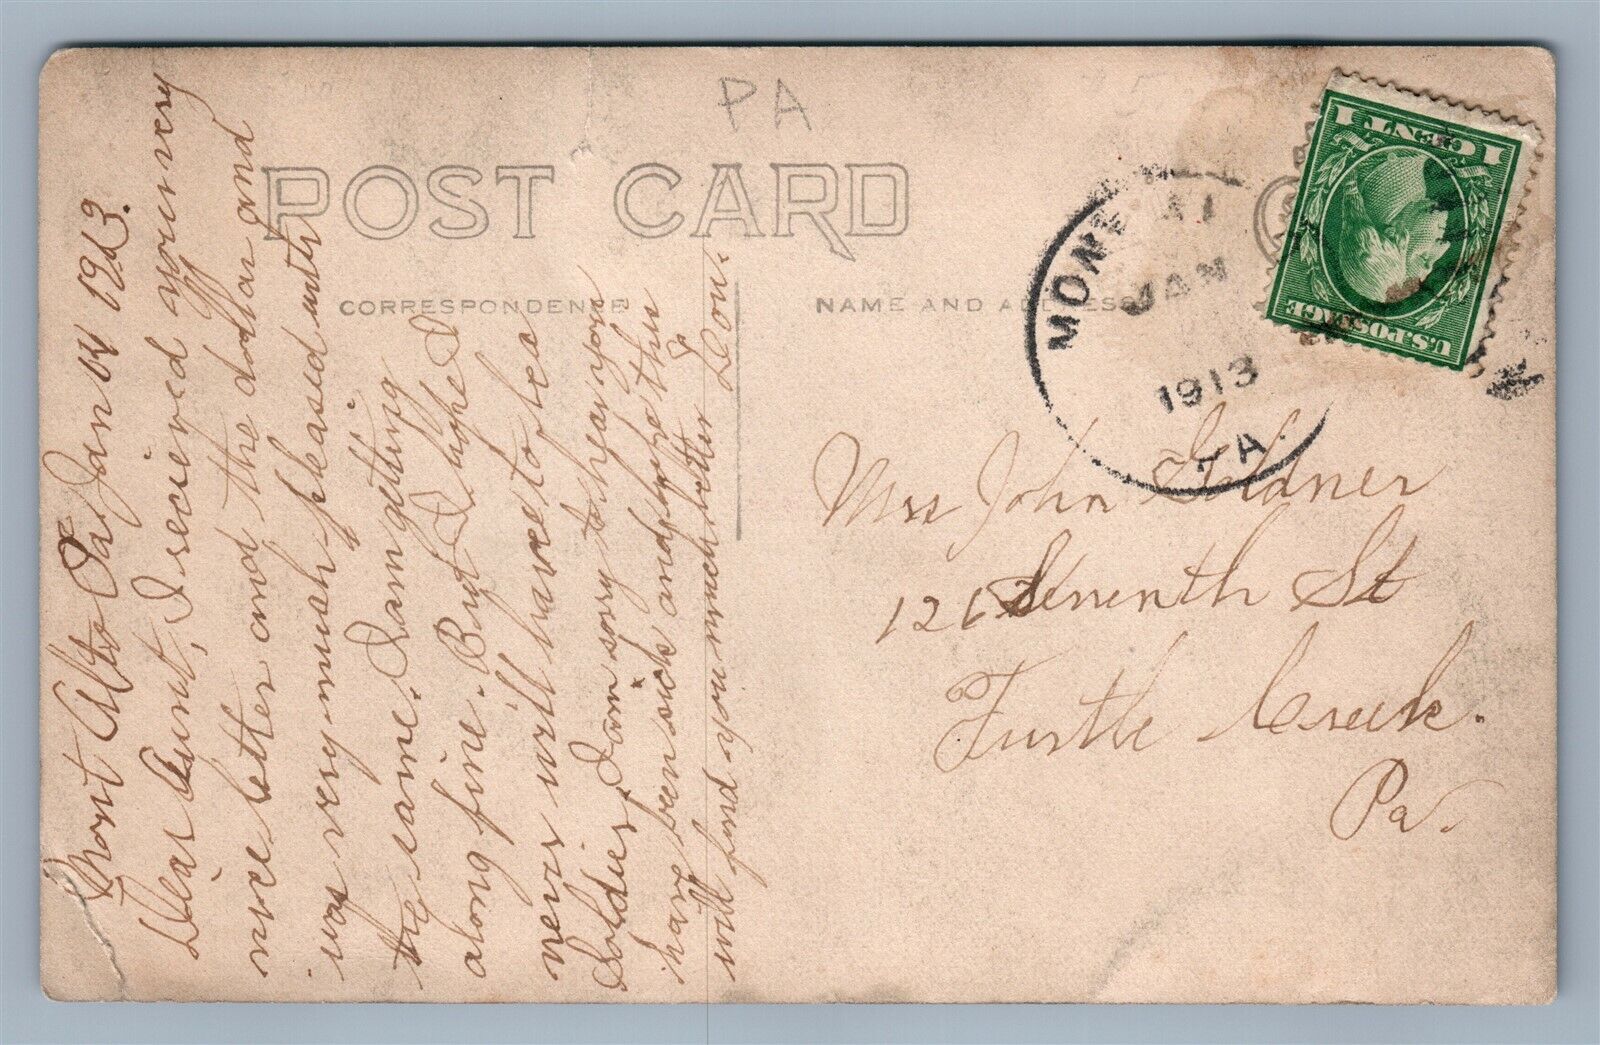 PA
POST CARD
CORRESPONDENCE
NAME AND ADDRESS
Mont Alto Pa. Jan 1913.
Dear Aunt, I received your very
nice letter and the dollar and
was very mush pleased with
the same. I am getting
along fine. But I hope I
never will have to be a
Soldier, I am sorry to hear you
have been sick and hope this
will find you much better
Leon.
MONT
JAN
1913
PA.
1 CENT 1
U.S. POSTAGE
Mrs John Goldner
126 Seventh St
Turtle Creek.
Pa.